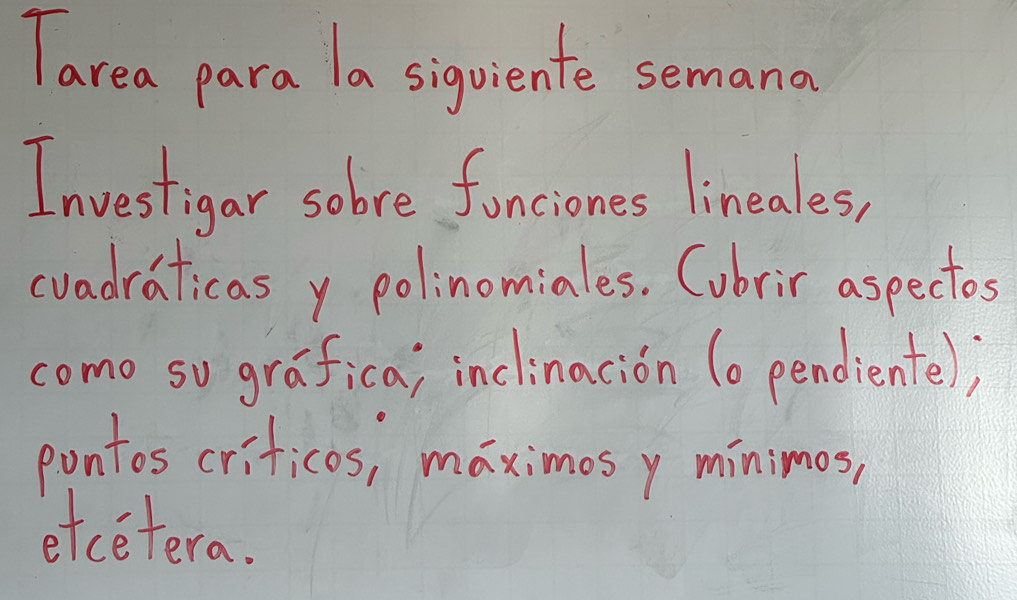 Tarea para la siguiente semana
Investigar sobre funciones lineales,
cuadráticas y polinomiales. Cubrir aspectos
como su gráfica; inclinación (o pendiente);
puntos críticos; máximos y mínimos,
etcétera.